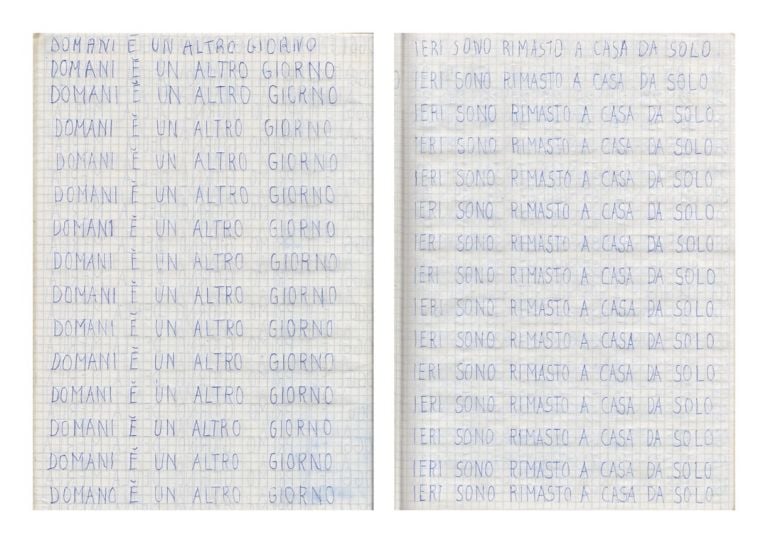 DOMANI Ĕ UN ALTRO GIORNO
DOMANI Ĕ UN ALTRO GIORNO
DOMANI Ĕ UN ALTRO GIORNO
DOMANI Ĕ UN ALTRO GIORNO
DOMANI Ĕ UN ALTRO GIORNO
DOMANI Ĕ UN ALTRO GIORNO
DOMANI Ĕ UN ALTRO GIORNO
DOMANI Ĕ UN ALTRO GIORNO
DOMANI Ĕ UN ALTRO GIORNO
DOMANI Ĕ UN ALTRO GIORNO
DOMANI Ĕ UN ALTRO GIORNO
DOMANI Ĕ UN ALTRO GIORNO
DOMANI Ĕ UN ALTRO GIORNO
DOMANI Ĕ UN ALTRO GIORNO
DOMANO Ĕ UN ALTRO GIORNO
IERI SONO RIMASTO A CASA DA SOLO
IERI SONO RIMASTO A CASA DA SOLO
IERI SONO RIMASTO A CASA DA SOLO
IERI SONO RIMASTO A CASA DA SOLO
IERI SONO RIMASTO A CASA DA SOLO
IERI SONO RIMASTO A CASA DA SOLO
IERI SONO RIMASTO A CASA DA SOLO
IERI SONO RIMASTO A CASA DA SOLO
IERI SONO RIMASTO A CASA DA SOLO
IERI SONO RIMASTO A CASA DA SOLO
IERI SONO RIMASTO A CASA DA SOLO
IERI SONO RIMASTO A CASA DA SOLO
IERI SONO RIMASTO A CASA DA SOLO
IERI SONO RIMASTO A CASA DA SOLO
IERI SONO RIMASTO A CASA DA SOLO